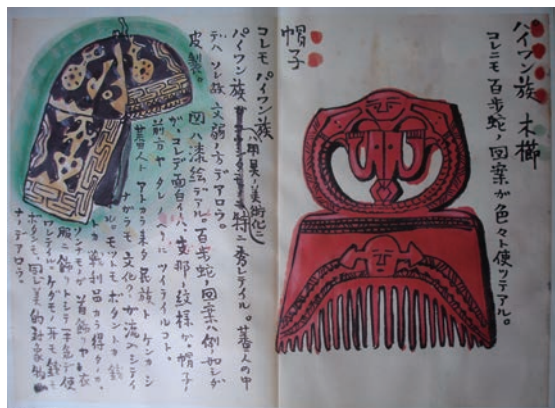 パイワン族 木櫛
コレニモ百歩蛇ノ図案ガ色々ト使ツテアル。
帽子
コレモパイワン族
パイワン族 用具ノ美術化ニ特ニ秀レテイル。蕃人の中
デハ ソレ故 文弱ノ方デアロウ。
皮製。図ハ漆絵デアル。百歩蛇ノ図案ハ例ノ如シダ
ガ、コレデ面白イノハ、支那ノ紋様ガ、帽子ノ
前方ヤタレノヘリニツイテイルコト。
蕃人ト アトカラ来タ民族ト ケンカシ
ナガラモ 文化ノ交流ハシテイ
ル。モツトモ ボタントカ銭
トカ戦利品カラ得タモノ、
ソンナモノガ 首飾リヤ衣
服ニ飾リトシテ平気デ使
ワレテイル。ケダモノノ牙モ銭モ
ボタンモ、同ジ美的対象物
ナノデアロウ。